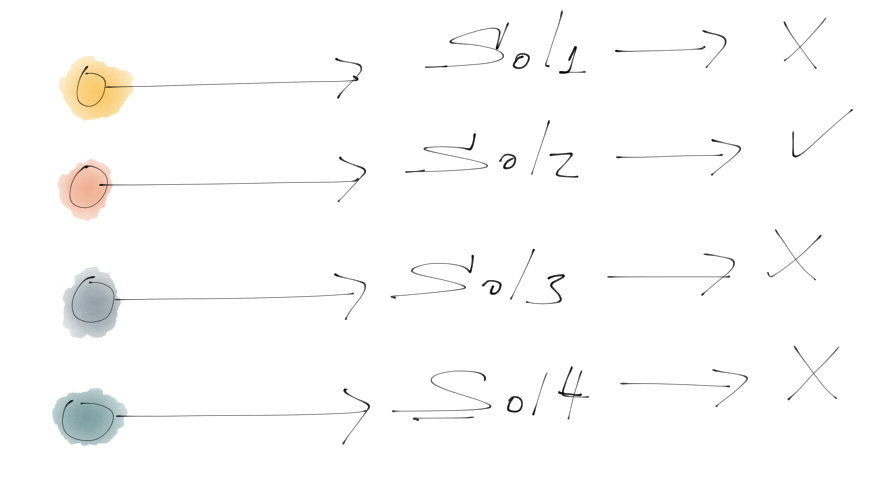 Sol1
Sol2
Sol3
Sol4